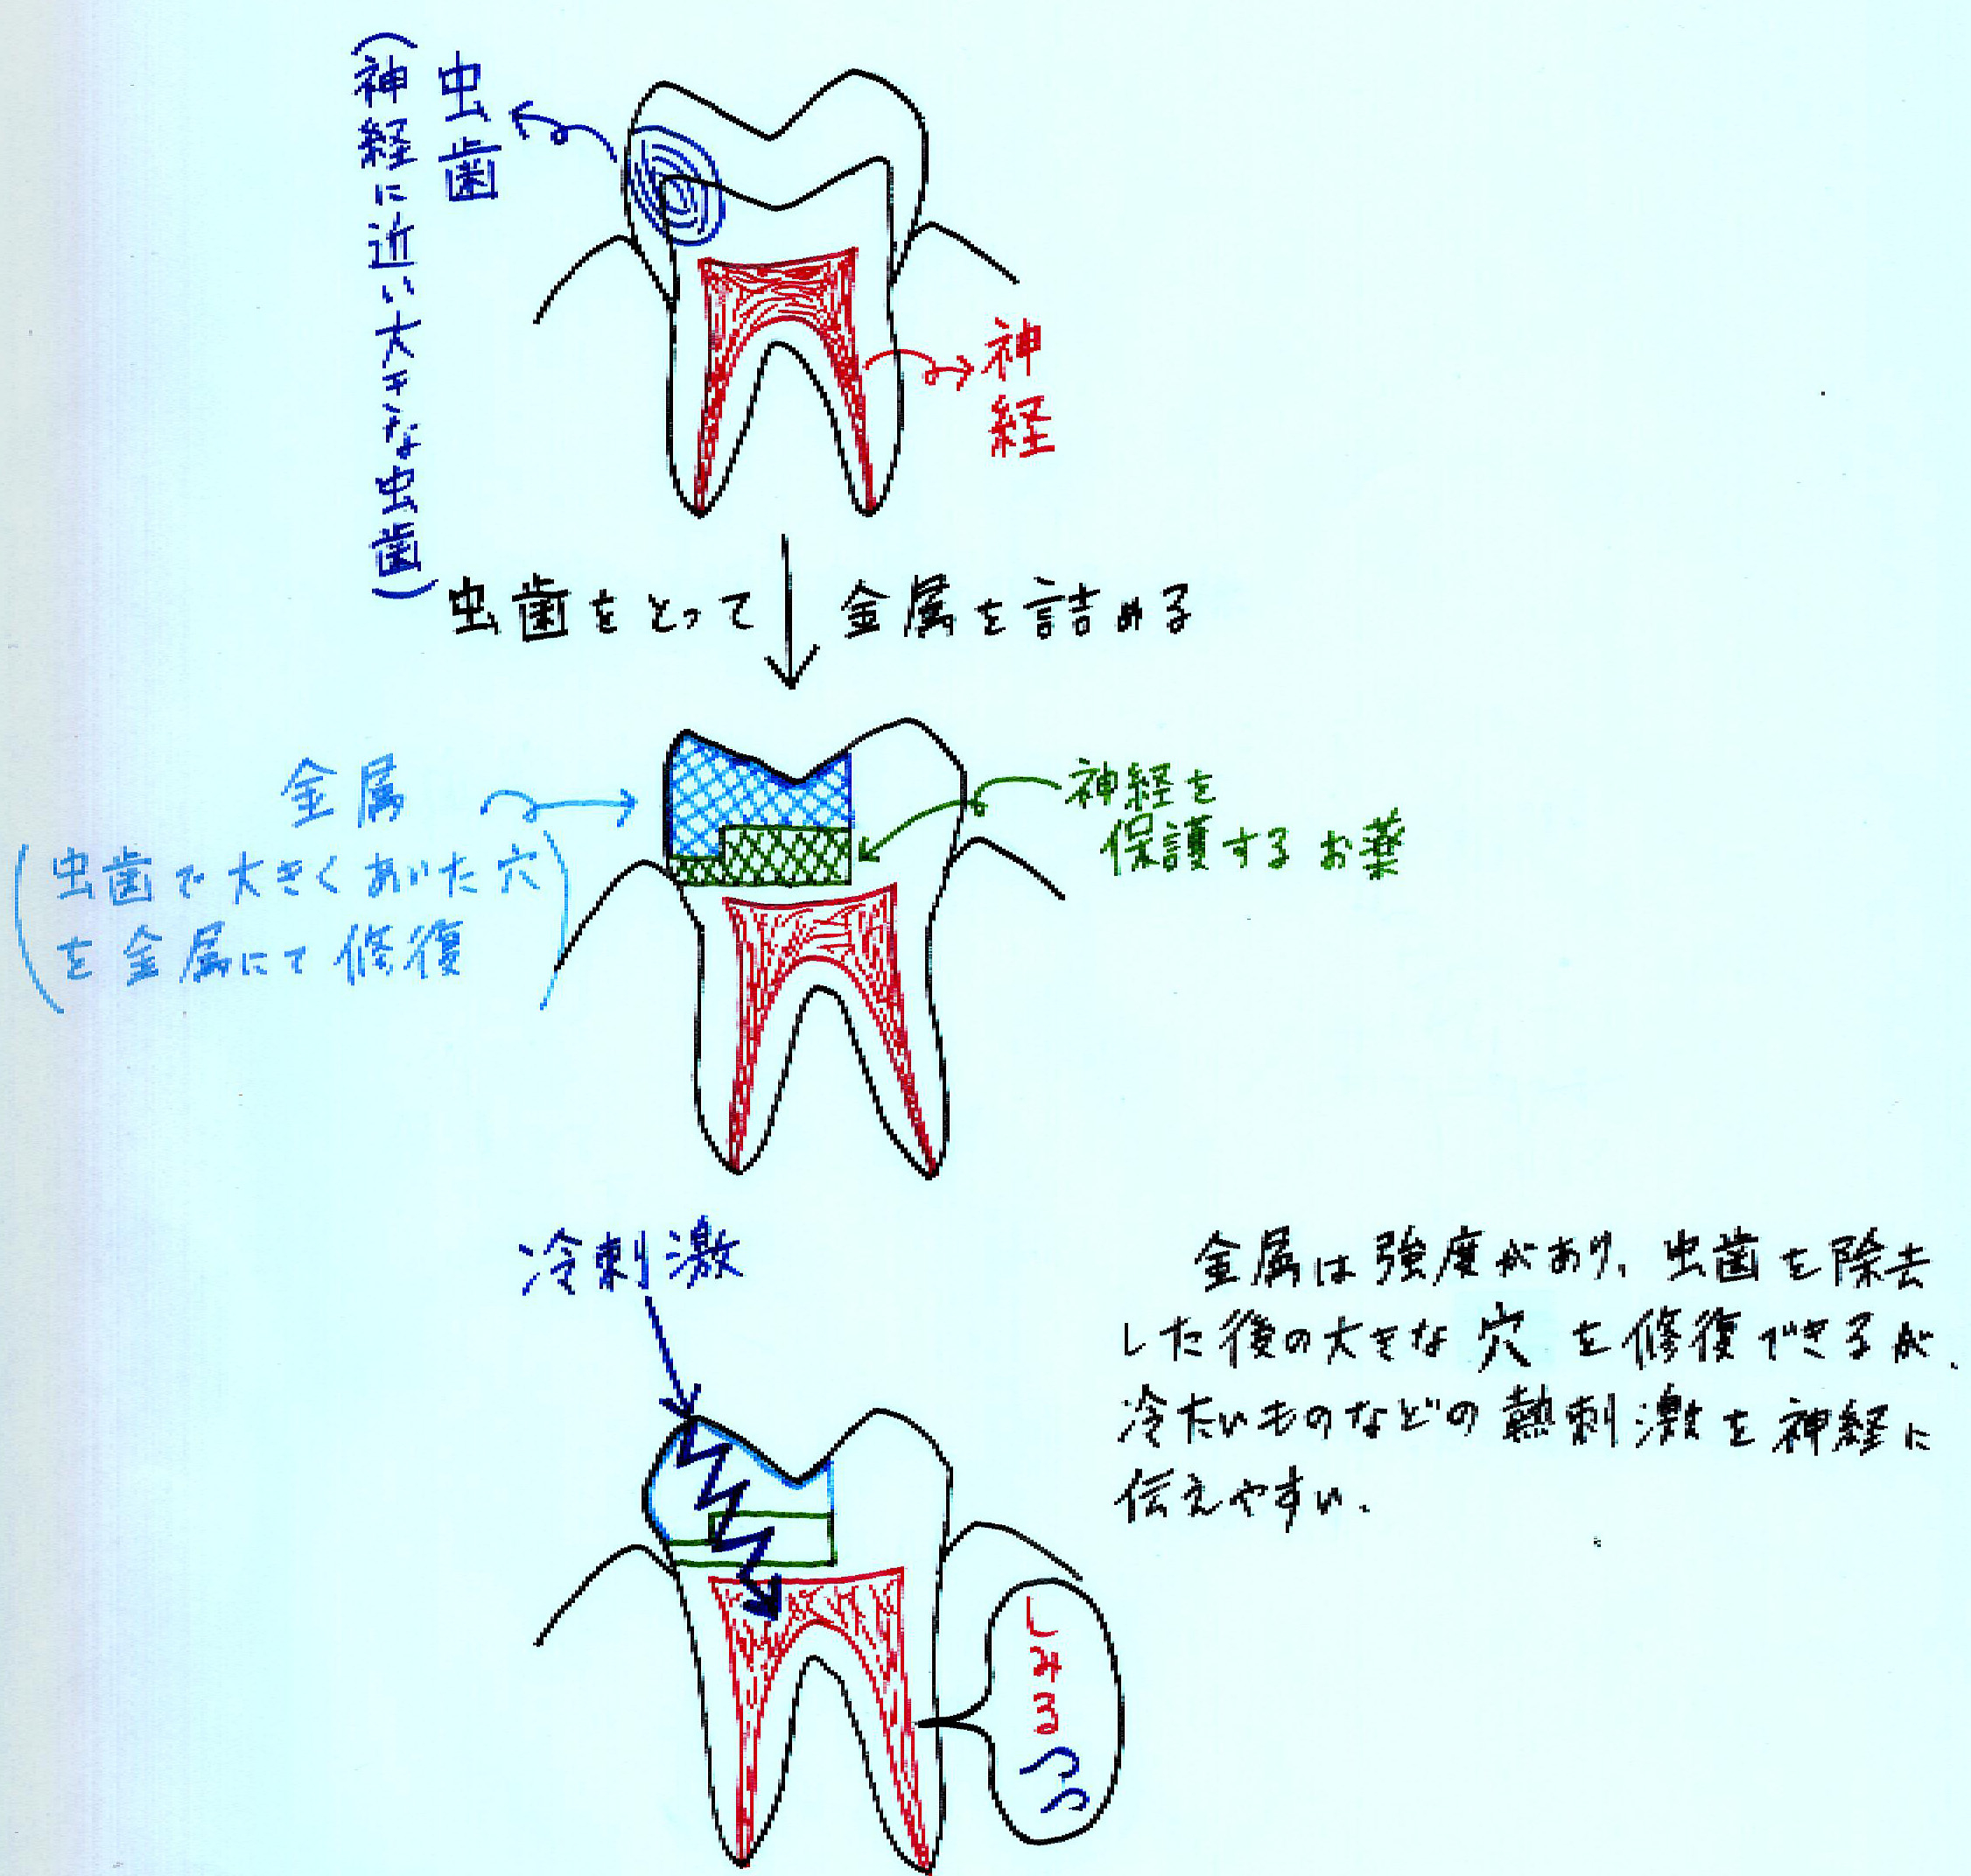 虫歯
(神経に近い大きな虫歯)
神経
虫歯をとって 金属を詰める
金属
(虫歯で大きくあいた穴
を金属にて修復)
神経を
保護するお薬
冷刺激
金属は強度があり、虫歯を除去
した後の大きな穴を修復できるが、
冷たいものなどの熱刺激を神経に
伝えやすい.
しみる